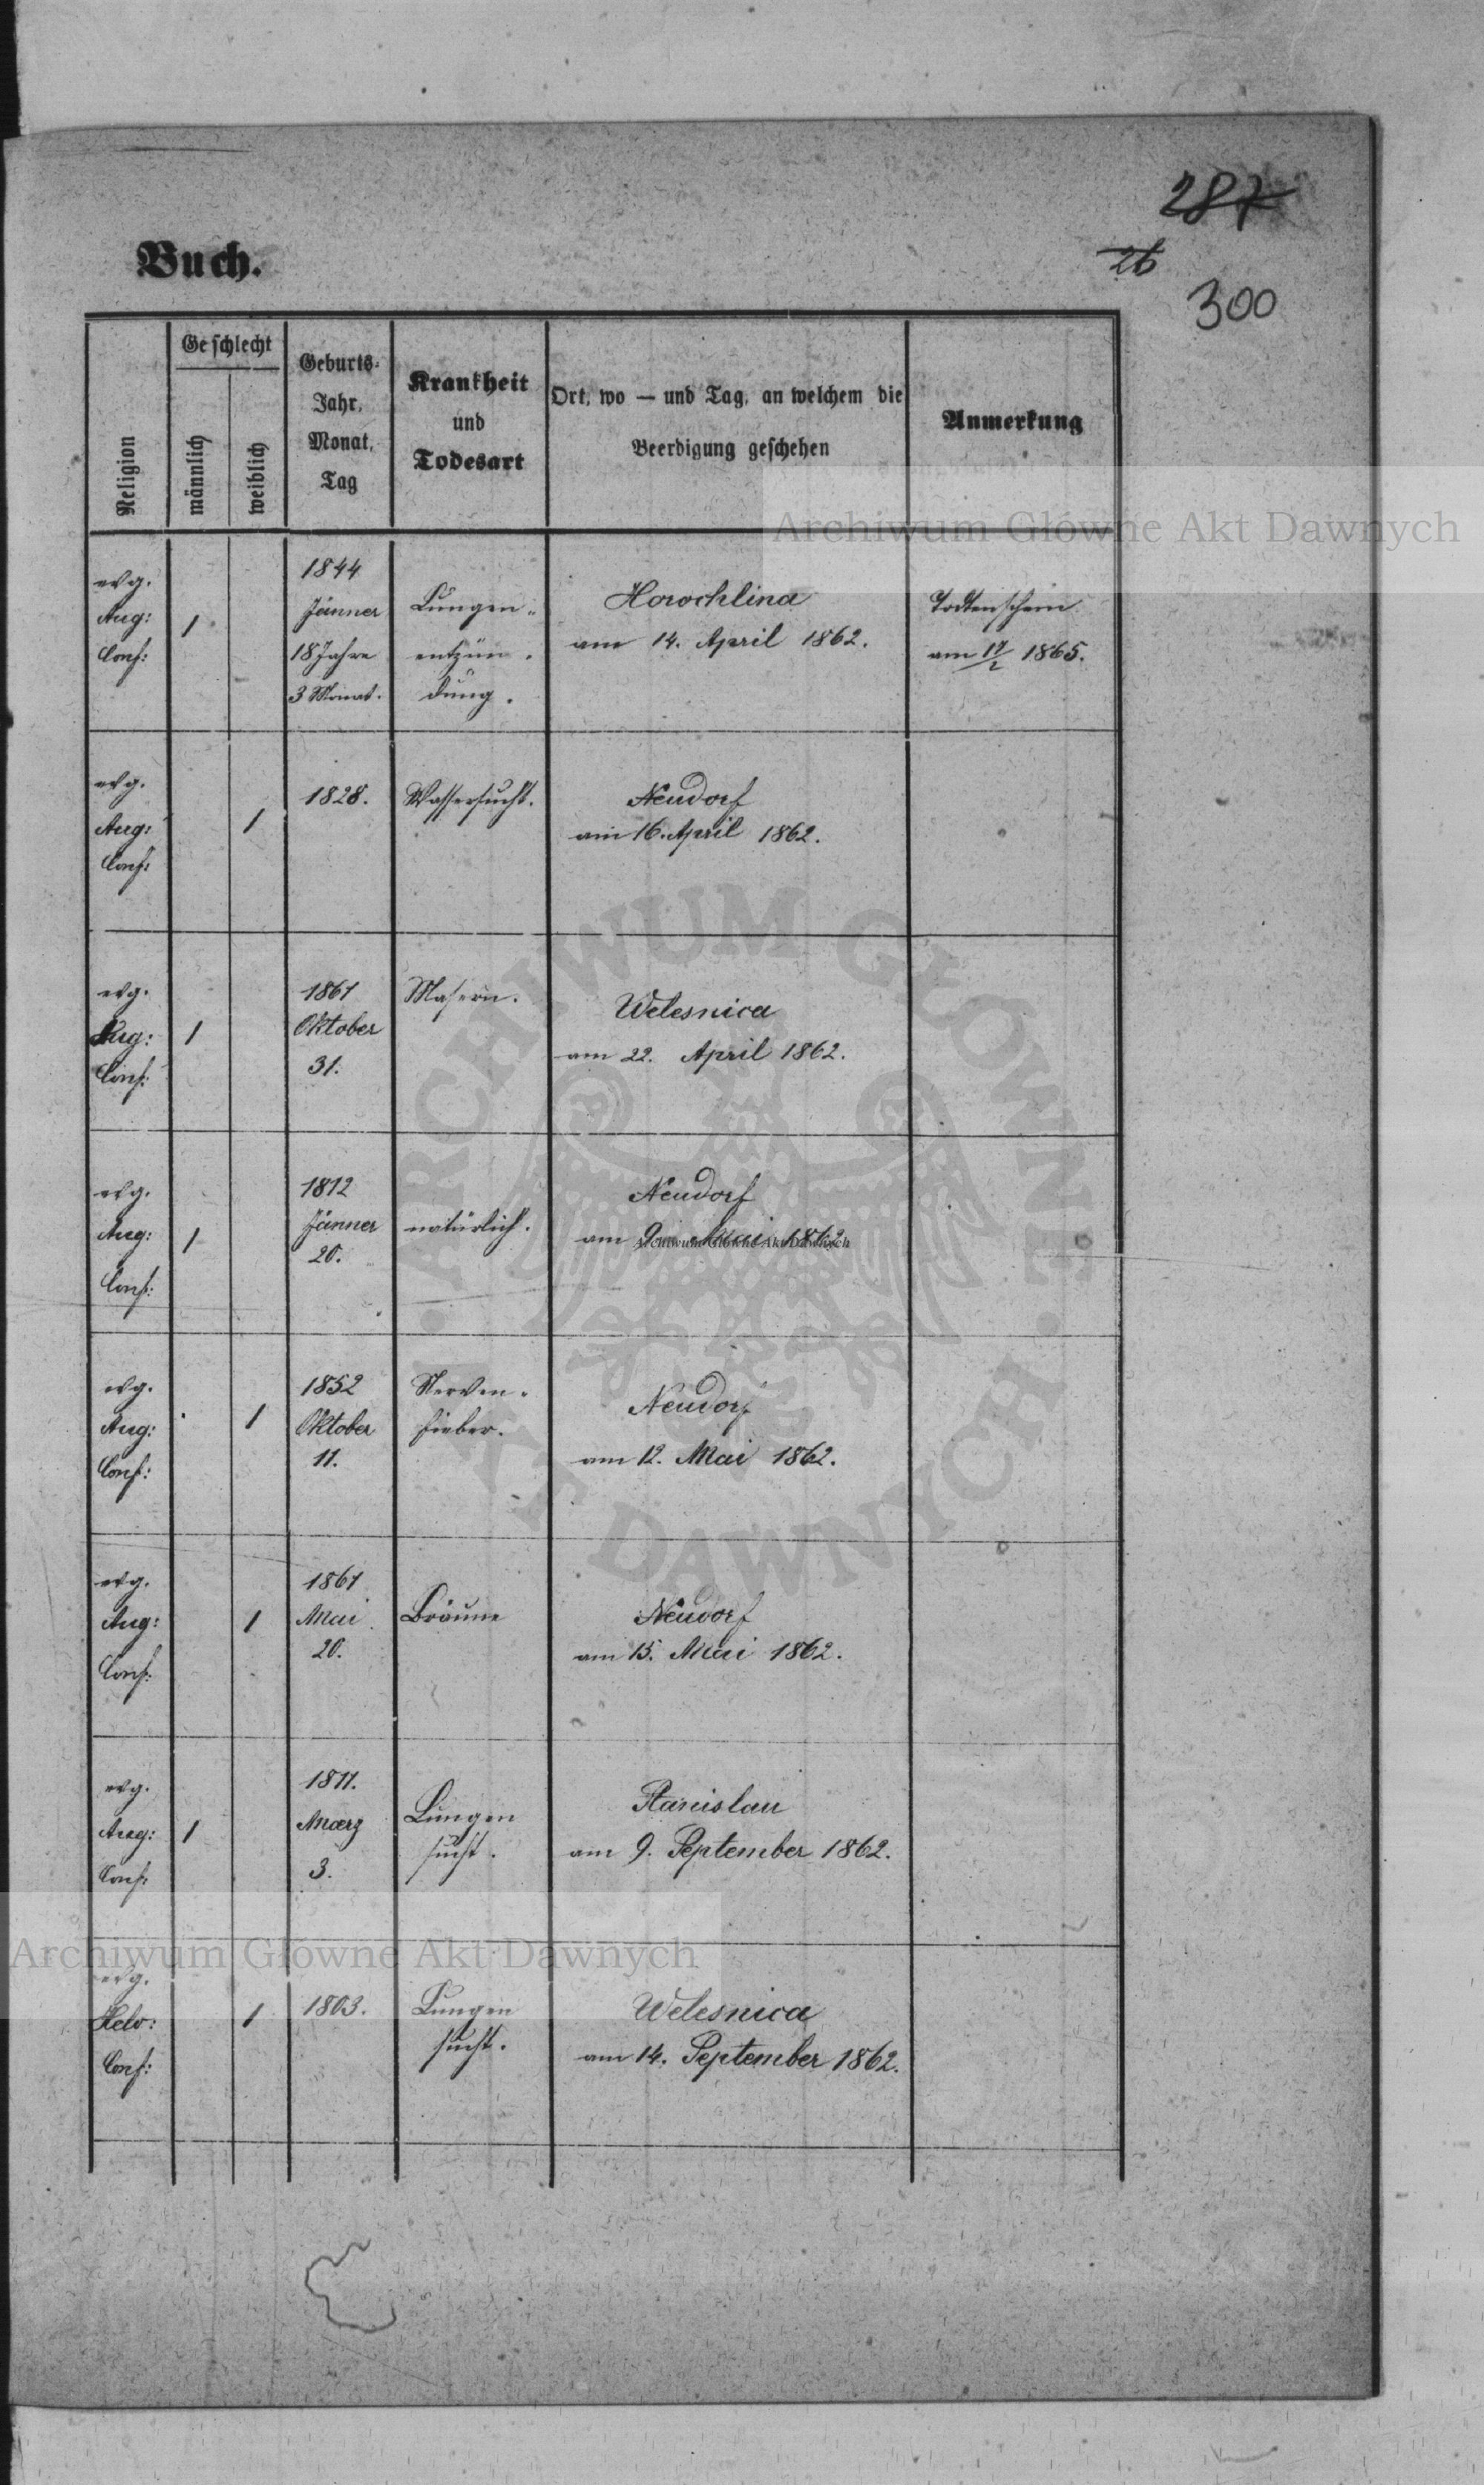 287
26
300
Buch.
Religion
Geschlecht
männlich
weiblich
Geburts-
Jahr,
Monat,
Tag
Krankheit
und
Todesart
Ort, wo — und Tag, an welchem die
Beerdigung geschehen
Anmerkung
Archiwum Główne Akt Dawnych
evg.
Aug:
Conf:
1
1844
Jänner
18 Jahre
3 Monat.
Lungen-
entzün-
dung.
Horochlina
am 14. April 1862.
Todtenschein
am 17/2 1865.
evg.
Aug:
Conf:
1
1828.
Wassersucht.
Neudorf
am 16. April 1862.
evg.
Aug:
Conf:
1
1861
Oktober
31.
Masern.
Welesnica
am 22. April 1862.
evg.
Aug:
Conf:
1
1812
Jänner
20.
natürlich.
Neudorf
am 9. Mai 1862
Archiwum Główne Akt Dawnych
evg.
Aug:
Conf:
1
1852
Oktober
11.
Nerven-
fieber.
Neudorf
am 12. Mai 1862.
evg.
Aug:
Conf:
1
1861
Mai
20.
Bräune
Neudorf
am 15. Mai 1862.
evg.
Aug:
Conf:
1
1811.
Maerz
3.
Lungen
sucht.
Stanislau
am 9. September 1862.
Archiwum Główne Akt Dawnych
evg.
Helv:
Conf:
1
1803.
Lungen
sucht.
Welesnica
am 14. September 1862.
ARCHIWUM GŁÓWNE AKT DAWNYCH